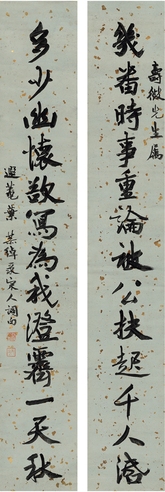 壽微先生屬
幾番時事重論被公扶起千人
多少幽懷寫為我澄霽一天秋
遐菴葉恭綽集宋人詞句